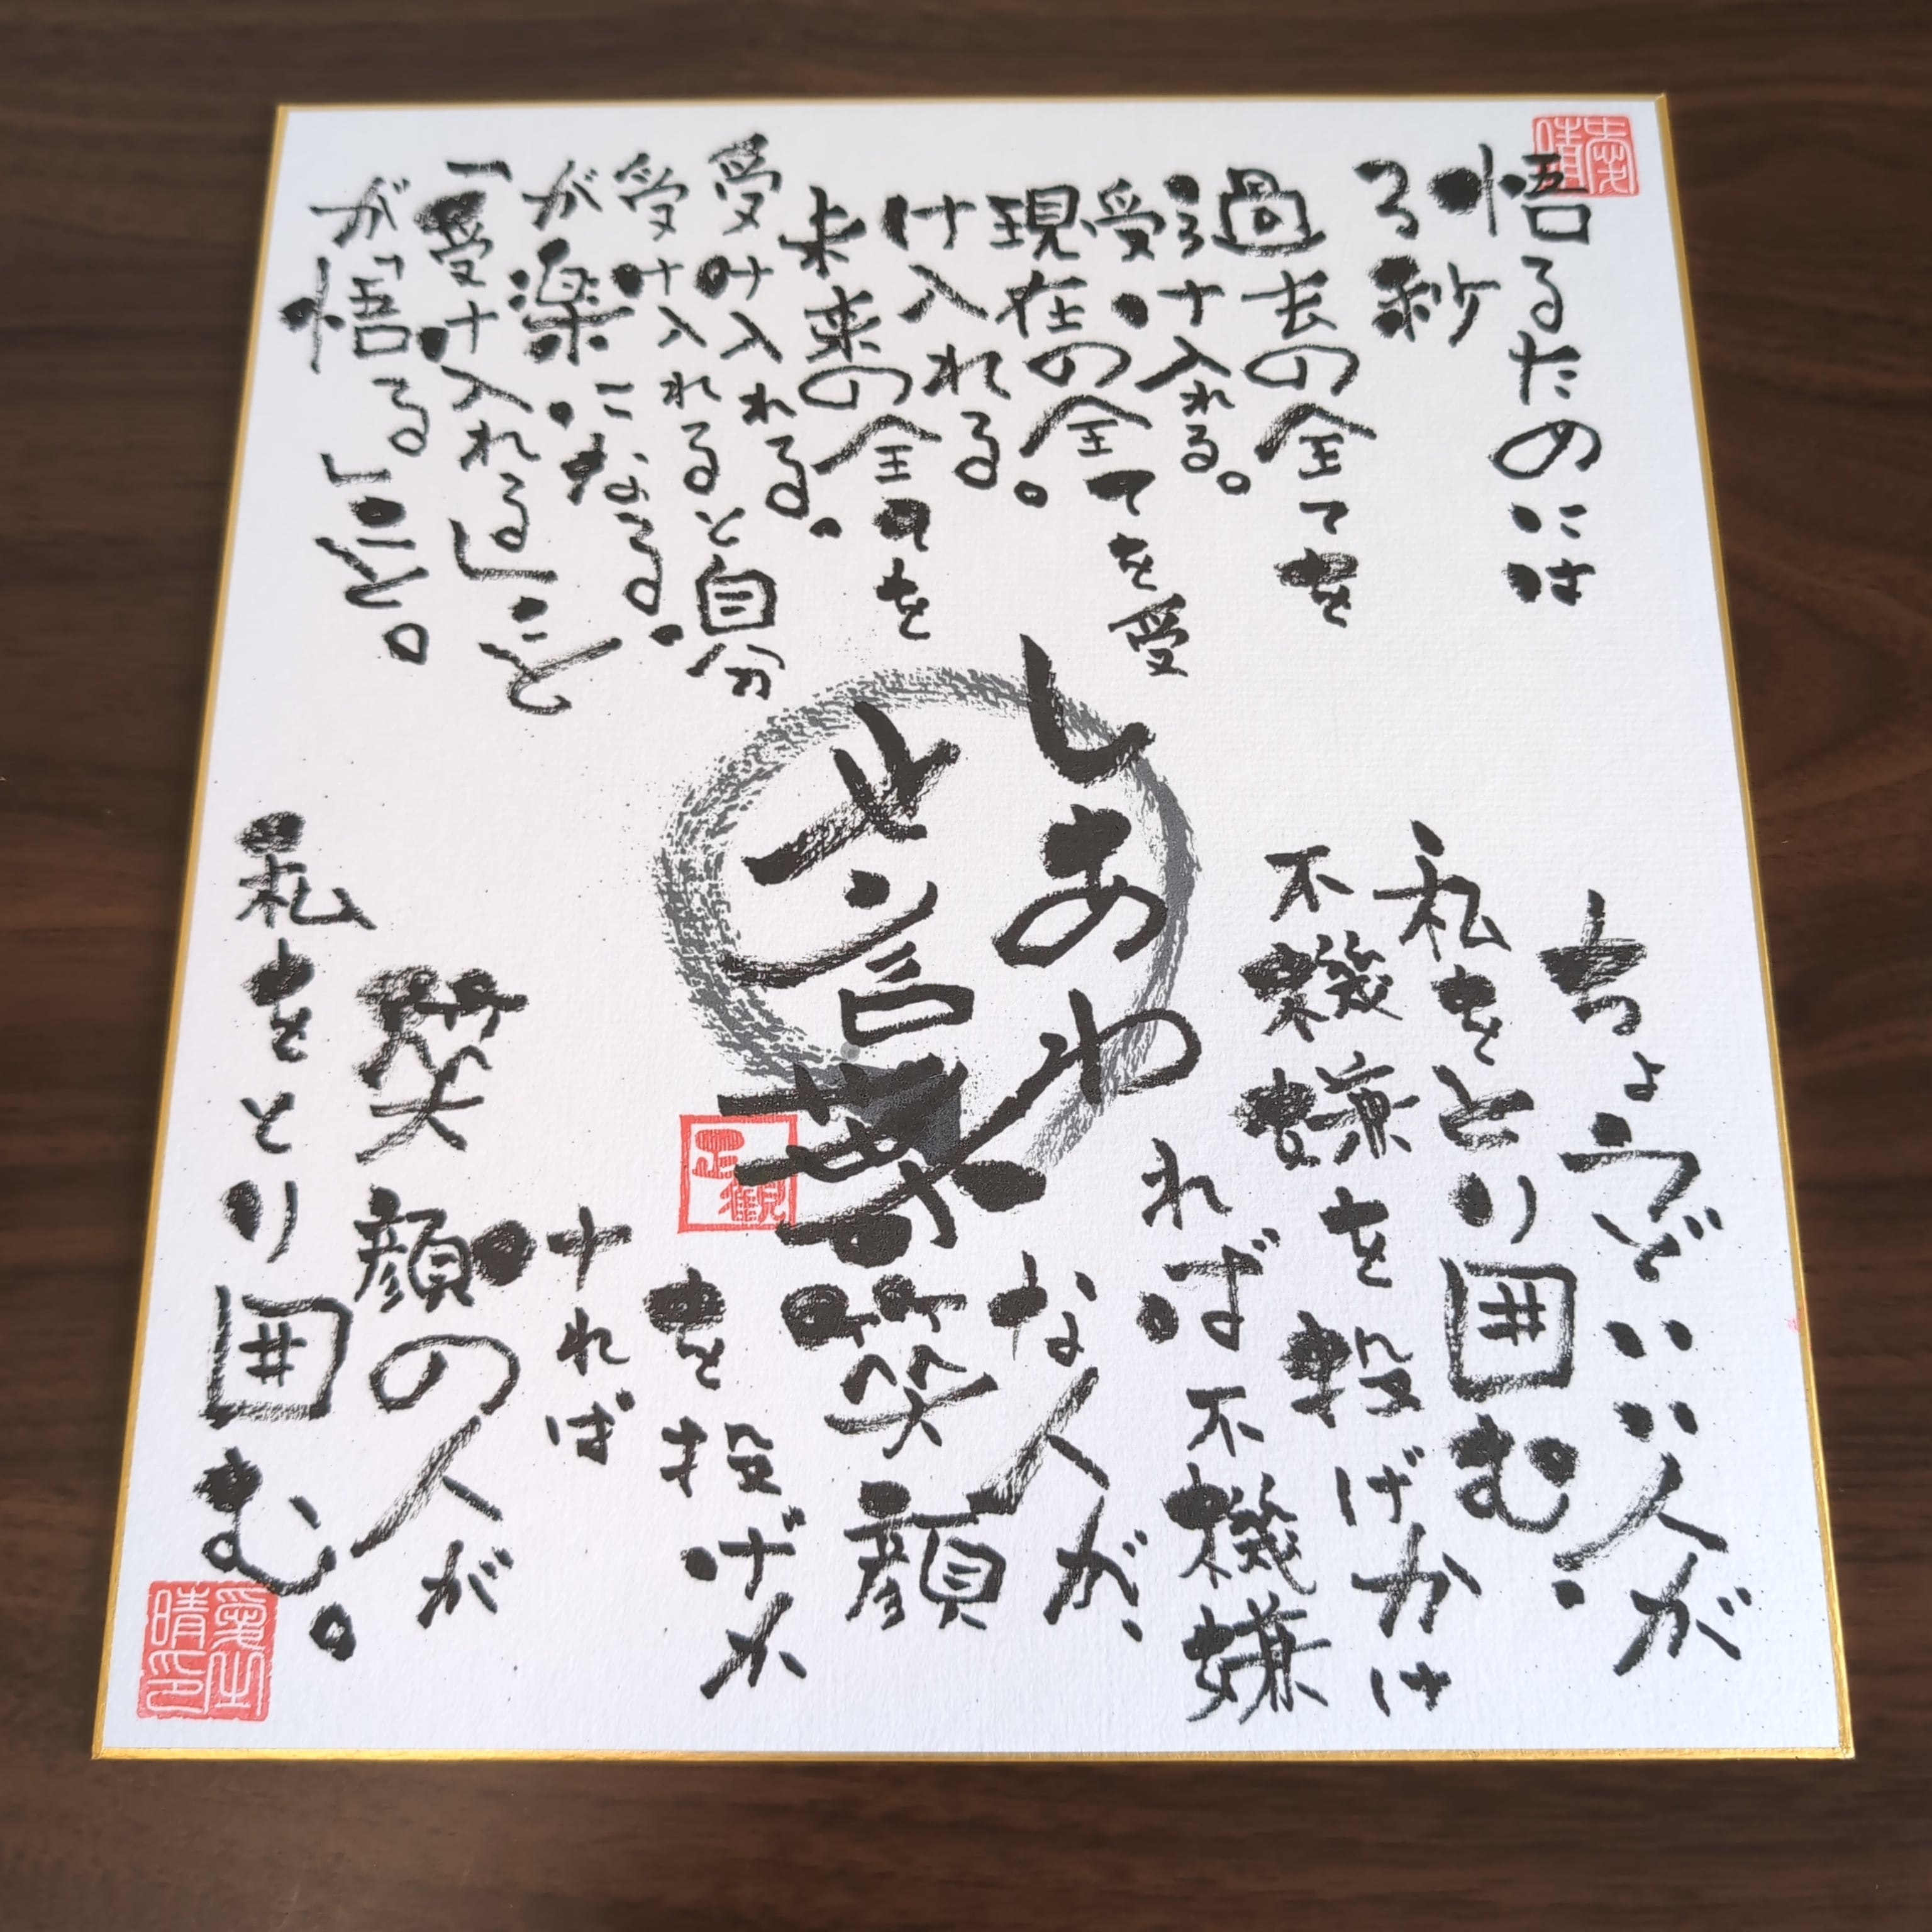 悟るためには
3秒
過去の全てを
受け入れる。
現在の全てを受
け入れる。
未来の全てを
受け入れる。
受け入れると自分
が楽になる。
「受け入れる」こと
が「悟る」こと。
しあわ
せ言葉
正観
ちょうどいい人が
私をとり囲む。
不機嫌を投げかけ
れば不機嫌
な人が、
笑顔
を投げか
ければ
笑顔の人が
私をとり囲む。